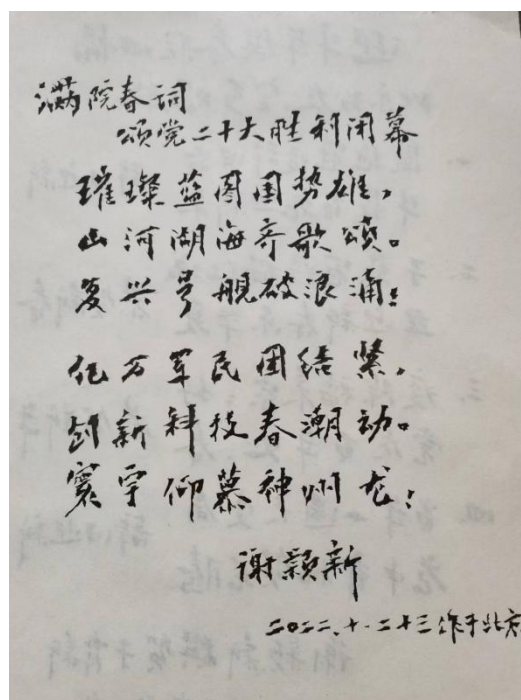 满院春词
颂党二十大胜利闭幕
璀璨蓝图国势雄，
山河湖海齐歌颂。
复兴号舰破浪涌！
亿万军民团结紧，
创新科技春潮动。
寰宇仰慕神州龙！
谢颖新
二〇二二、十、二十三作于北京